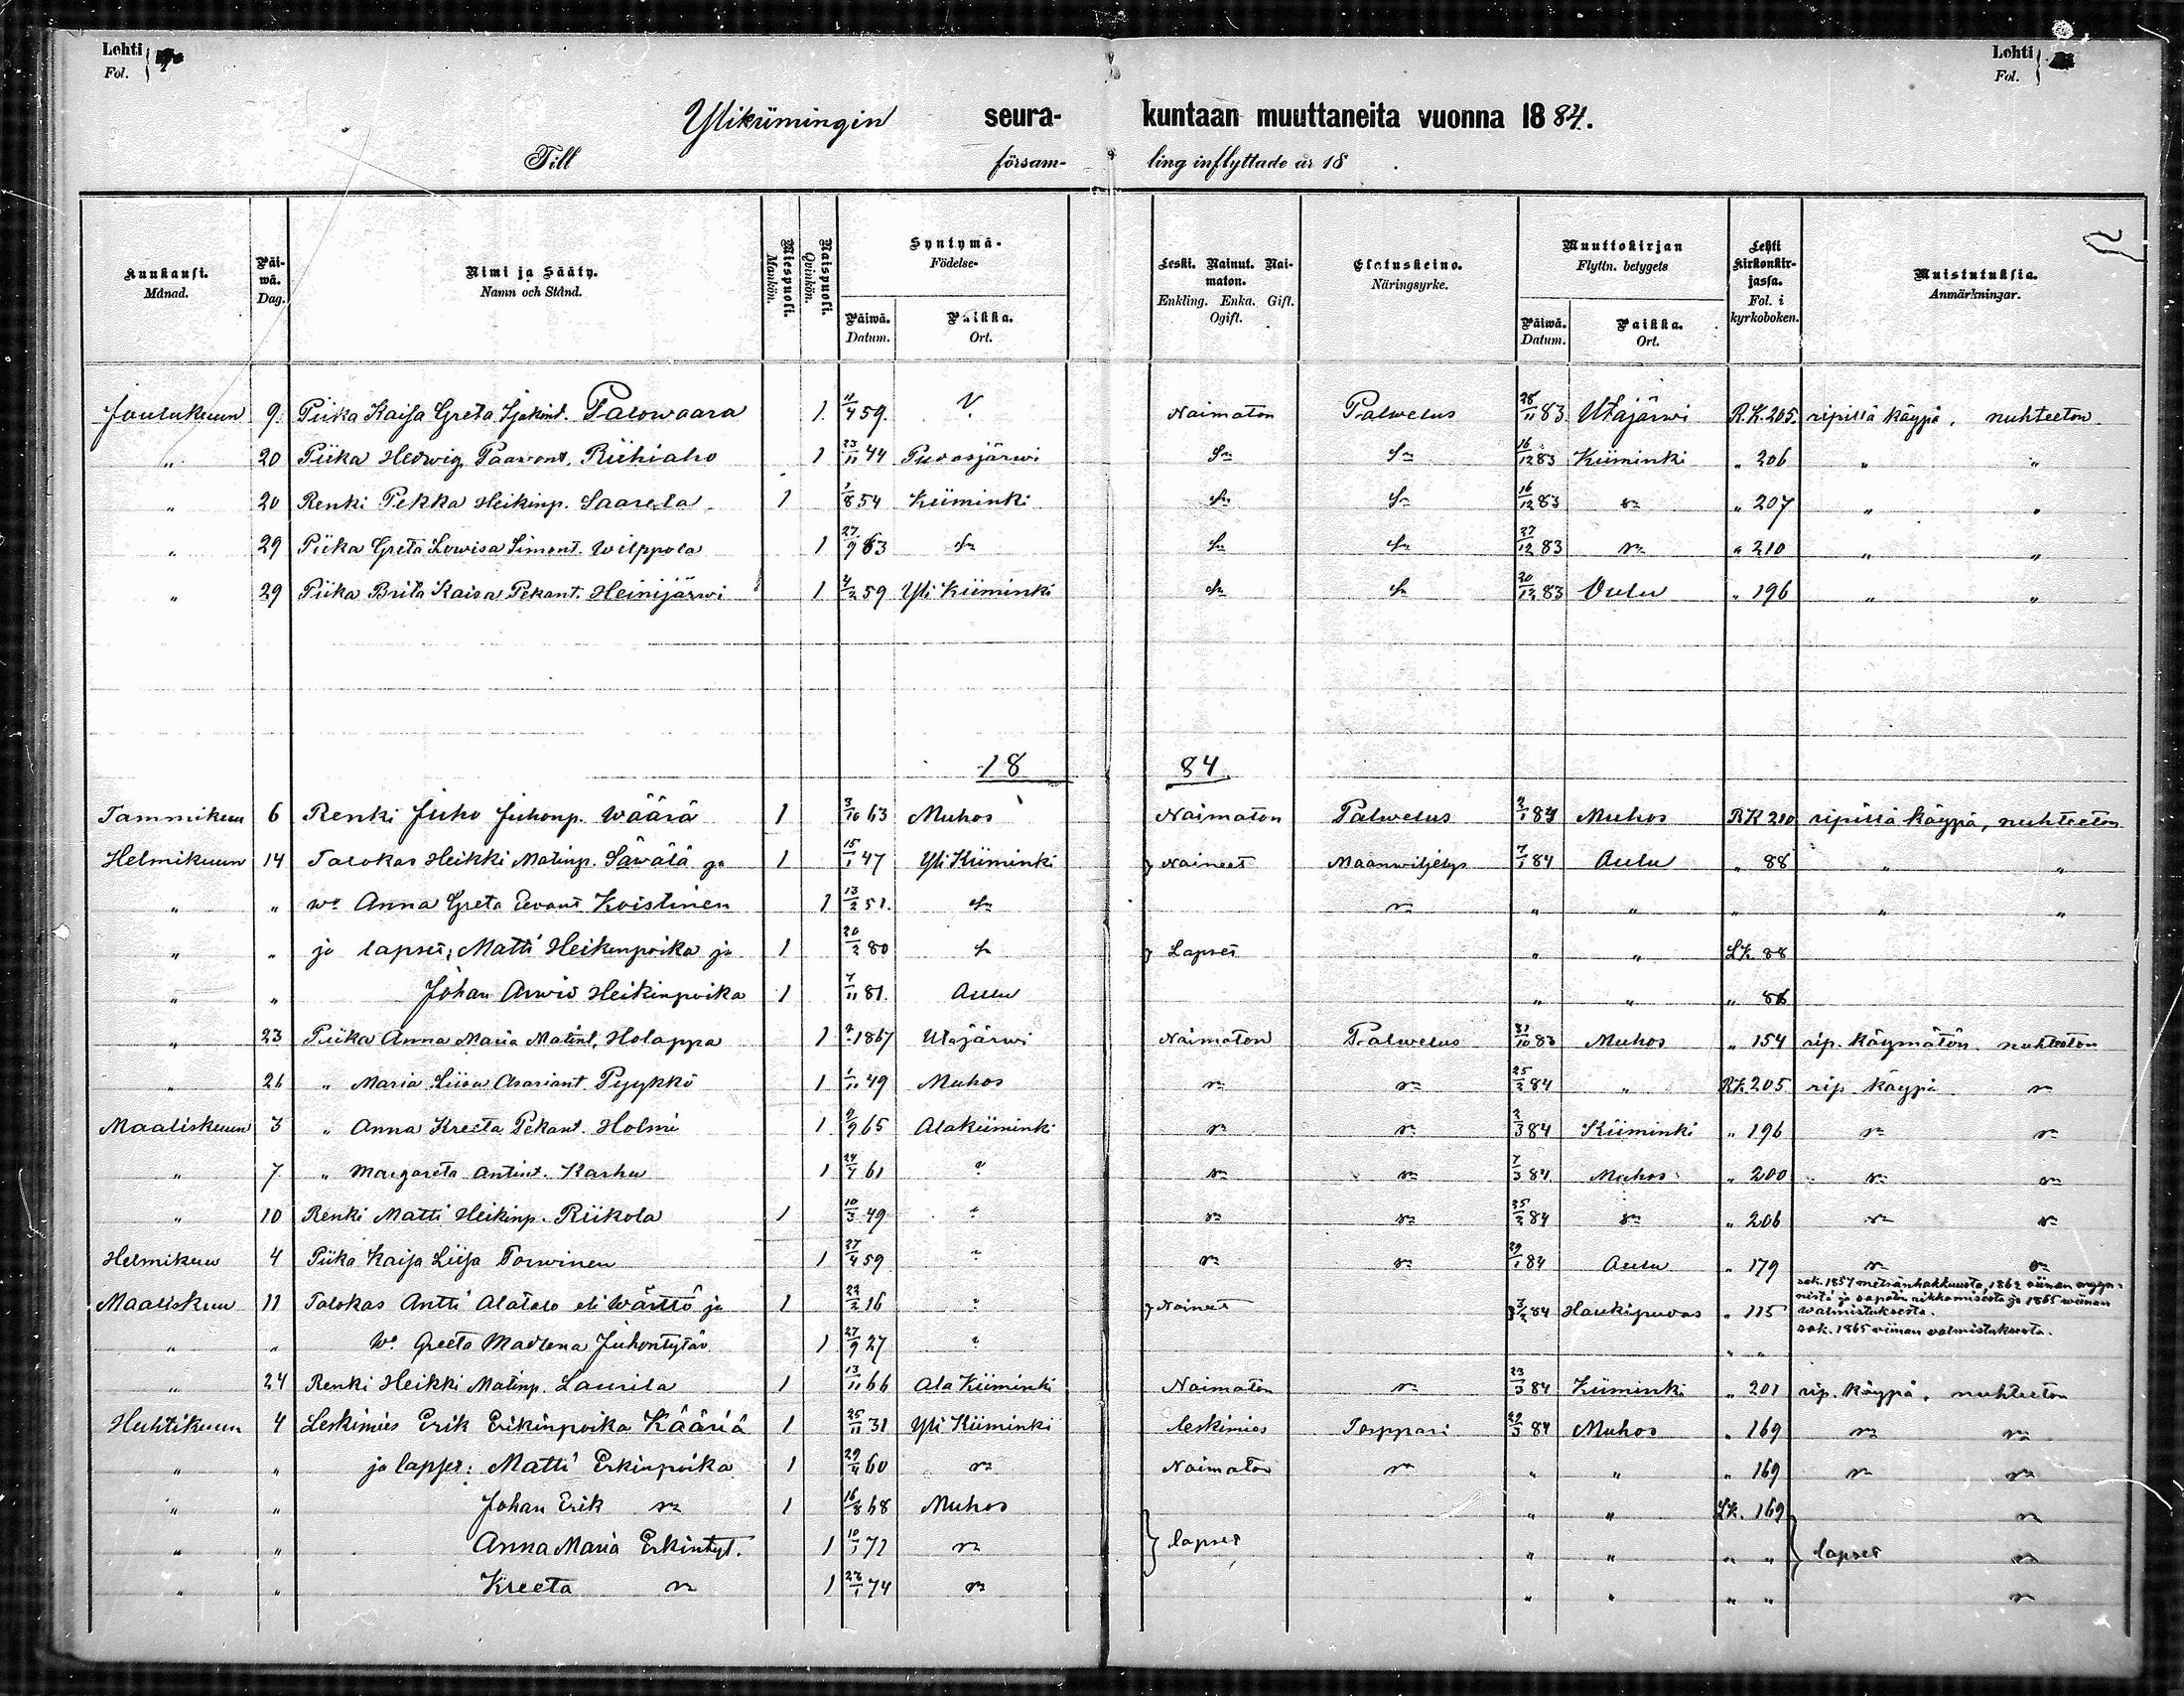 Lehti Fol.
Lehti Fol.
Ylikiimingin seura- kuntaan muuttaneita vuonna 1884.
Till försam- ling inflyttade år 18 .
Kuukausi. Månad.
Päiwä. Dag.
Nimi ja Sääty. Namn och Stånd.
Miespuoli. Mankön.
Naispuoli. Qvinkön.
Syntymä- Födelse-
Päiwä. Datum.
Paikka. Ort.
Leski. Nainut. Naimaton. Enkling. Enka. Gift. Ogift.
Elatuskeino. Näringsyrke.
Muuttokirjan Flyttn. betygets
Päiwä. Datum.
Paikka. Ort.
Lehti kirkonkirjassa. Fol. i kyrkoboken.
Muistutuksia. Anmärkningar.
Joulukuun 9. Piika Kaisa Greta Palowaara 1. 11/4 59. Naimaton Palwelus 28/11 83 Utajärwi R.K. 205. ripillä käypä, nuhteeton.
" 20 Piika Hedwig Paavont. Riihiaho 1 23/11 44 Pudasjärwi 16/12 83 Kiiminki " 206 " "
" 20 Renki Pekka Heikinp. Saarela 1 1/8 54 Kiiminki 16/12 83 " 207 " "
" 29 Piika Greta Lowisa Simont. Wilppola 1 27/9 63 27/12 83 " 210 " "
" 29 Piika Brita Kaisa Pekant. Heinijärwi 1 4/2 59 Yli Kiiminki 20/12 83 Oulu " 196 " "
18 84
Tammikuu 6 Renki Juho Juhonp. Wäärä 1 3/10 63 Muhos Naimaton Palwelus 2/1 84 Muhos RK 210 ripillä käypä, nuhteeton
Helmikuun 14 Talokas Heikki Matinp. Säwälä ja 1 15/1 47 Yli Kiiminki Naineet Maanwiljelys 7/1 84 Oulu " 88 " "
" " wo Anna Greta Eevant. Koistinen 1 13/2 51. " " " " "
" " ja lapset; Matti Heikinpoika ja 1 20/2 80 Lapset " " LK. 88
" " Johan Arwid Heikinpoika 1 7/11 81. Oulu " " " 88
" 23 Piika Anna Maria Matint. Holappa 1 1867 Utajärwi Naimaton Palwelus 31/10 83 Muhos " 154 rip. käymätön nuhteeton
" 26 " Maria Liisa Asariant. Pyykkö 1 1/11 49 Muhos 25/2 84 " RK. 205 rip. käypä
Maaliskuun 3 " Anna Kreeta Pekant. Holmi 1 9/9 65 Alakiiminki 2/3 84 Kiiminki " 196
" 7 " Margareta Antint. Karhu 1 24/7 61 7/3 84 Muhos " 200
" 10 Renki Matti Heikinp. Riikola 1 10/3 49 25/2 84 " 206
Helmikuu 4 Piika Kaisa Liisa Torwinen 1 27/4 59 29/1 84 Oulu " 179
Maaliskuu 11 Talokas Antti Alatalo eli Wärttö ja 1 22/2 16 Naineet 3/2 84 Haukipudas " 115 sak. 1857 metsänhakkuusta, 1862 viinan myynnistä ja sapatin rikkomisesta ja 1865 viinan walmistuksesta.
" " Wo Greeta Madlena Juhontytär 1 27/9 27 " " sak. 1865 viinan walmistuksesta.
" 24 Renki Heikki Matinp. Laurila 1 13/11 66 Ala Kiiminki Naimaton 23/3 84 Kiiminki " 201 rip. käypä, nuhteeton
Huhtikuun 4 Leskimies Erik Erikinpoika Kääriä 1 25/11 31 Yli Kiiminki leskimies Torppari 29/3 84 Muhos " 169
" " ja lapset: Matti Erkinpoika 1 29/4 60 Naimaton " " " 169
" " Johan Erik 1 16/8 68 Muhos " " LK. 169
" " Anna Maria Erkintyt. 1 10/1 72 lapset " " " " lapset
" " Kreeta 1 23/1 74 " " " "